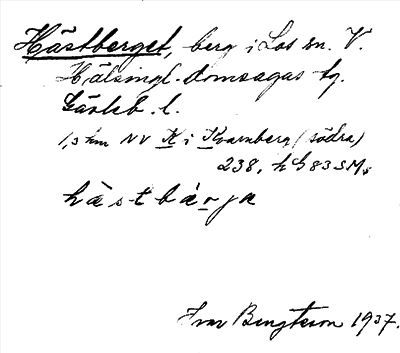 Hästberget, berg i Los sn. V.
Hälsingl. domsagas tg.
Gävleb. l.
1,3 km NV K i Kvarnberg (södra)
238, h G 83 SM,
hästbárja
Ivar Bengtsson 1937.